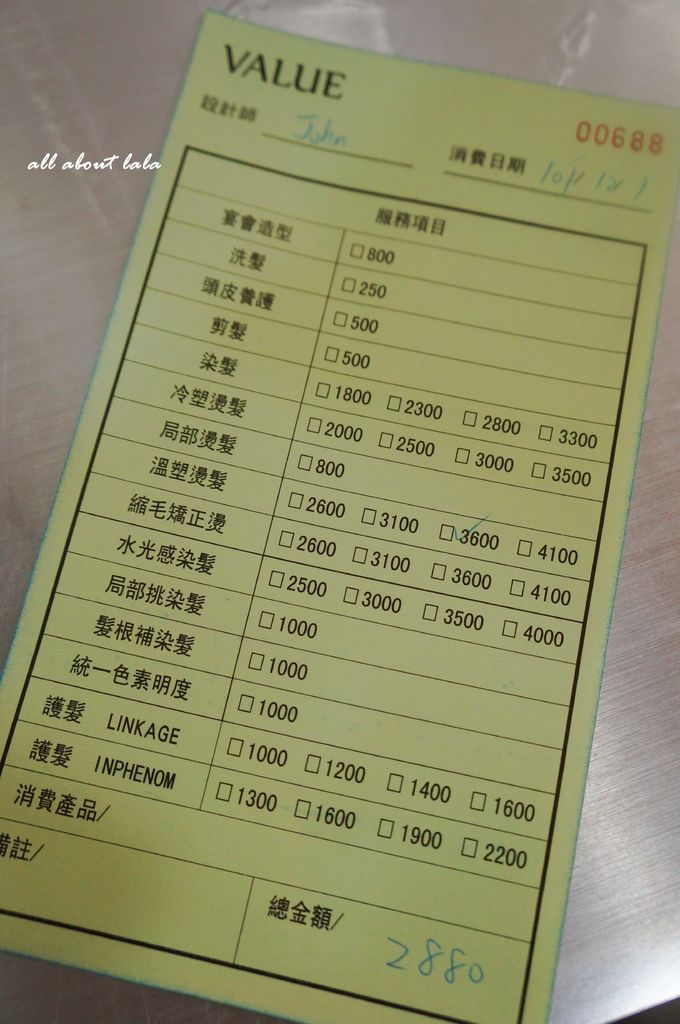 VALUE
00688
設計師 John 消費日期 101/12/1
all about lala
服務項目
宴會造型 □800
洗髮 □250
頭皮養護 □500
剪髮 □500
染髮 □1800 □2300 □2800 □3300
冷塑燙髮 □2000 □2500 □3000 □3500
局部燙髮 □800
溫塑燙髮 □2600 □3100 ☑3600 □4100
縮毛矯正燙 □2600 □3100 □3600 □4100
水光感染髮 □2500 □3000 □3500 □4000
局部挑染髮 □1000
髮根補染髮 □1000
統一色素明度 □1000
護髮 LINKAGE □1000 □1200 □1400 □1600
護髮 INPHENOM □1300 □1600 □1900 □2200
消費產品/
備註/
總金額/ 2880